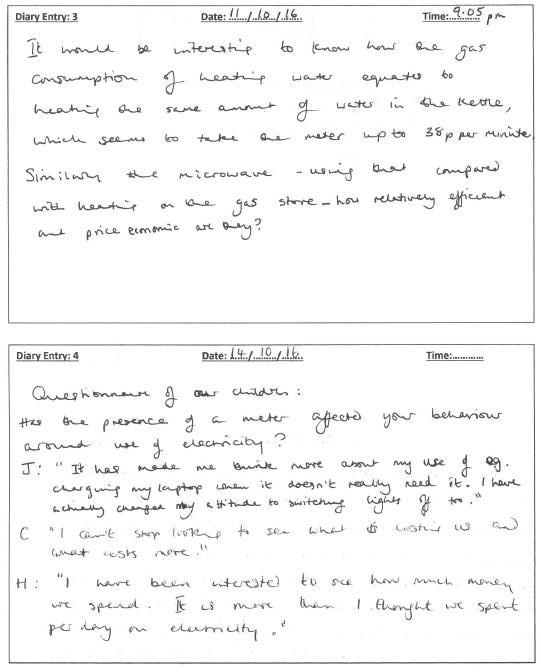 Diary Entry: 3 Date: 11/10/16 Time: 9.05 pm
It would be interesting to know how the gas
consumption of heating water equates to
heating the same amount of water in the kettle,
which seems to take the meter up to 38p per minute.
Similarly the microwave - using that compared
with heating on the gas stove - how relatively efficient
and price economic are they?
Diary Entry: 4 Date: 14/10/16 Time:............
Questionnaire of our children:
Has the presence of a meter affected your behaviour
around use of electricity?
J: "It has made me think more about my use of eg.
charging my laptop when it doesn't really need it. I have
actually changed my attitude to switching lights off too."
C "I can't stop looking to see what is costing us and
what costs more."
H: "I have been interested to see how much money
we spend. It is more than I thought we spent
per day on electricity."